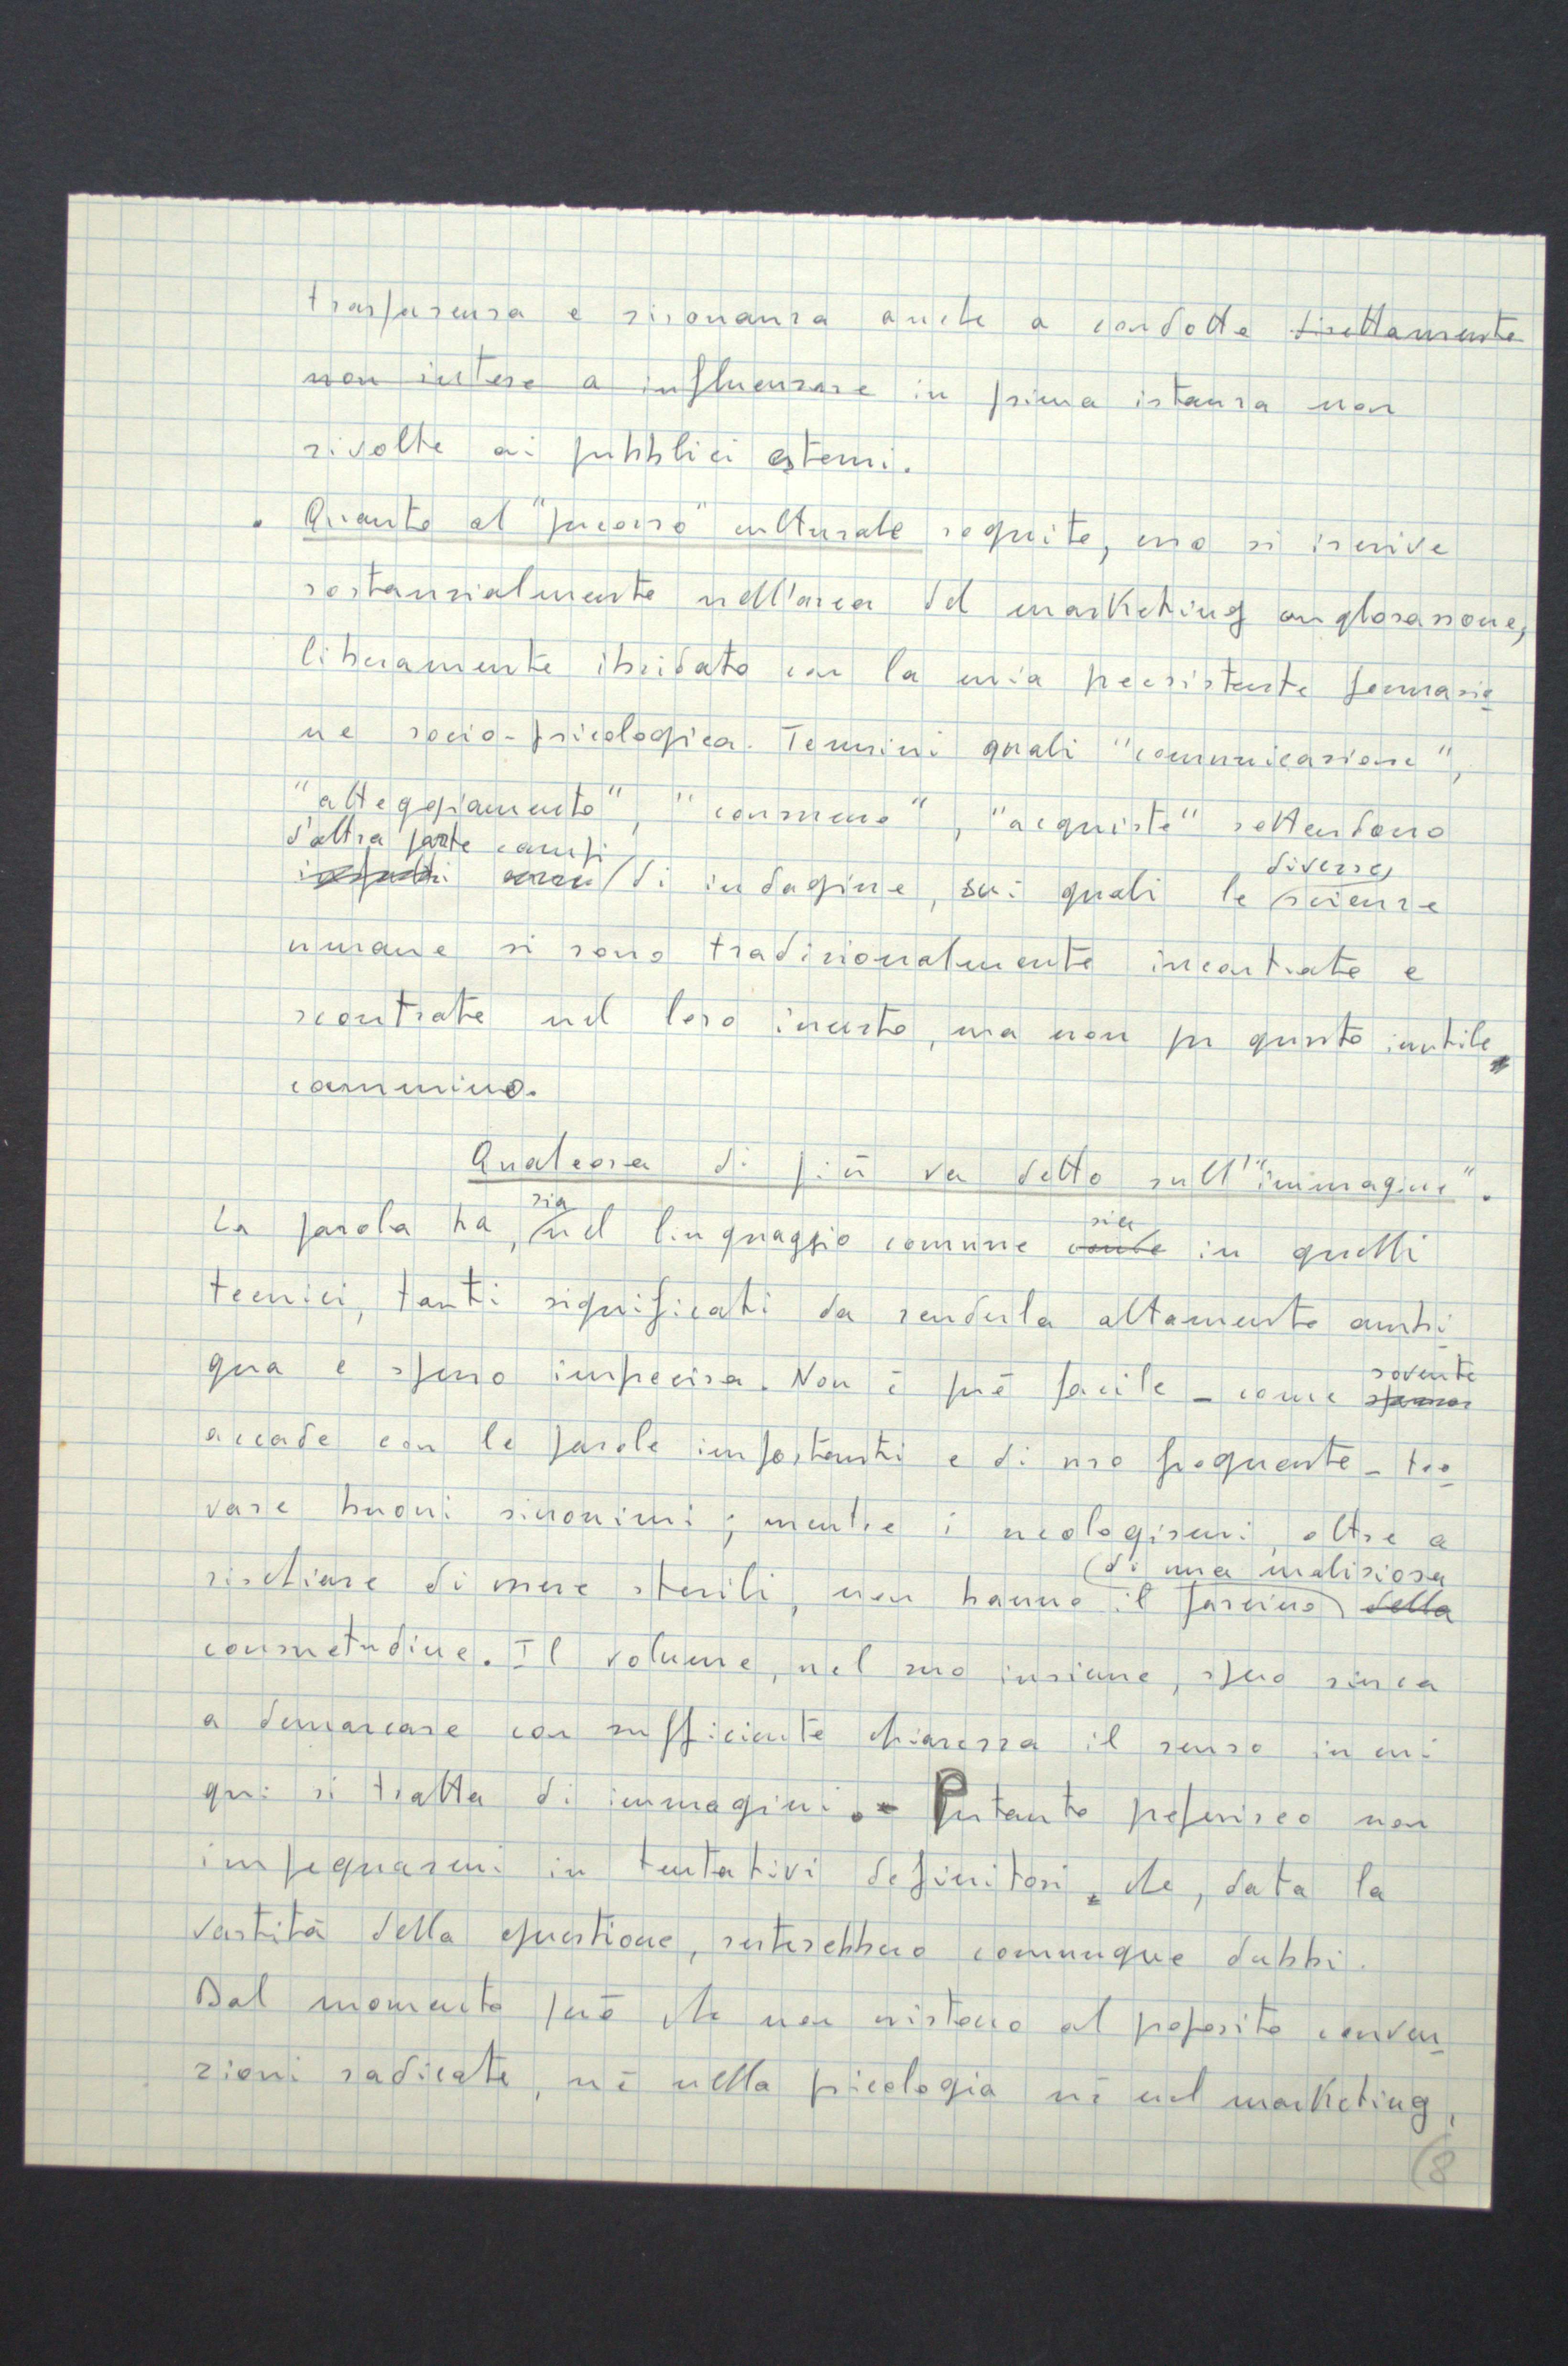 trasparenza e risonanza anche a condotte direttamente
non intese a influenzare in prima istanza non
rivolte ai pubblici esterni.
• Quanto al "percorso" culturale seguito, esso si iscrive
sostanzialmente nell'area del marketing anglosassone,
liberamente ibridato con la mia preesistente formazio
ne socio-psicologica. Termini quali "comunicazione",
"atteggiamento", "consumo", "acquisto" sottendono
d'altra parte campi
di indagine, sui quali le scienze
diverse
umane si sono tradizionalmente incontrate e
scontrate nel loro incerto, ma non per questo inutile
cammino.
Qualcosa di più va detto sull'"immagine".
La parola ha, sia nel linguaggio comune sia in quelli
tecnici, tanti significati da renderla altamente ambi
gua e spesso imprecisa. Non è però facile - come sovente
accade con le parole importanti e di uso frequente - tro
vare buoni sinonimi; mentre i neologismi, oltre a
rischiare di essere sterili, non hanno il fascino di una maliziosa della
consuetudine. Il volume, nel suo insieme, spero riesca
a demarcare con sufficiente chiarezza il senso in cui
qui si tratta di immagini. Pertanto preferisco non
impegnarmi in tentativi definitori che, data la
vastità della questione, resterebbero comunque dubbi.
Dal momento però che non esistono al proposito conven
zioni radicate, né nella psicologia né nel marketing,
(8